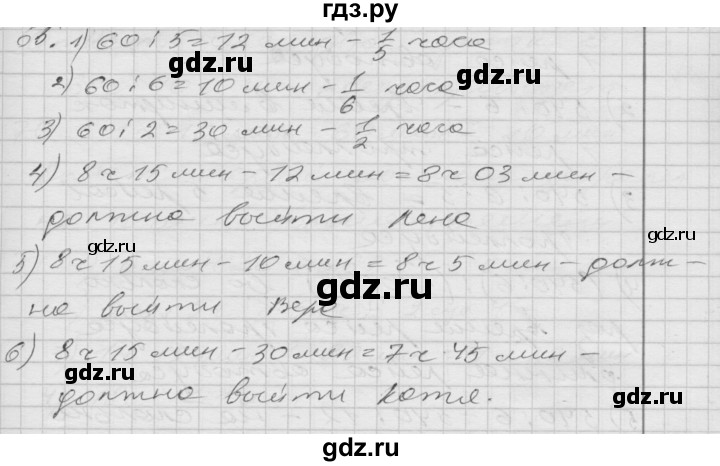 гдз.ру
об. 1) 60 : 5 = 12 мин – 1/5 часа
gdz.ru
2) 60 : 6 = 10 мин – 1/6 часа
gdz.ru
3) 60 : 2 = 30 мин – 1/2 часа
4) 8 ч 15 мин – 12 мин = 8 ч 03 мин –
gdz.ru
должна выйти Лена
gdz.ru
gdz.ru
5) 8 ч 15 мин – 10 мин = 8 ч 5 мин – долж–
на выйти Вера
gdz.ru
6) 8 ч 15 мин – 30 мин = 7 ч 45 мин –
gdz.ru
gdz.ru
должна выйти Катя.
gdz.ru
gdz.ru